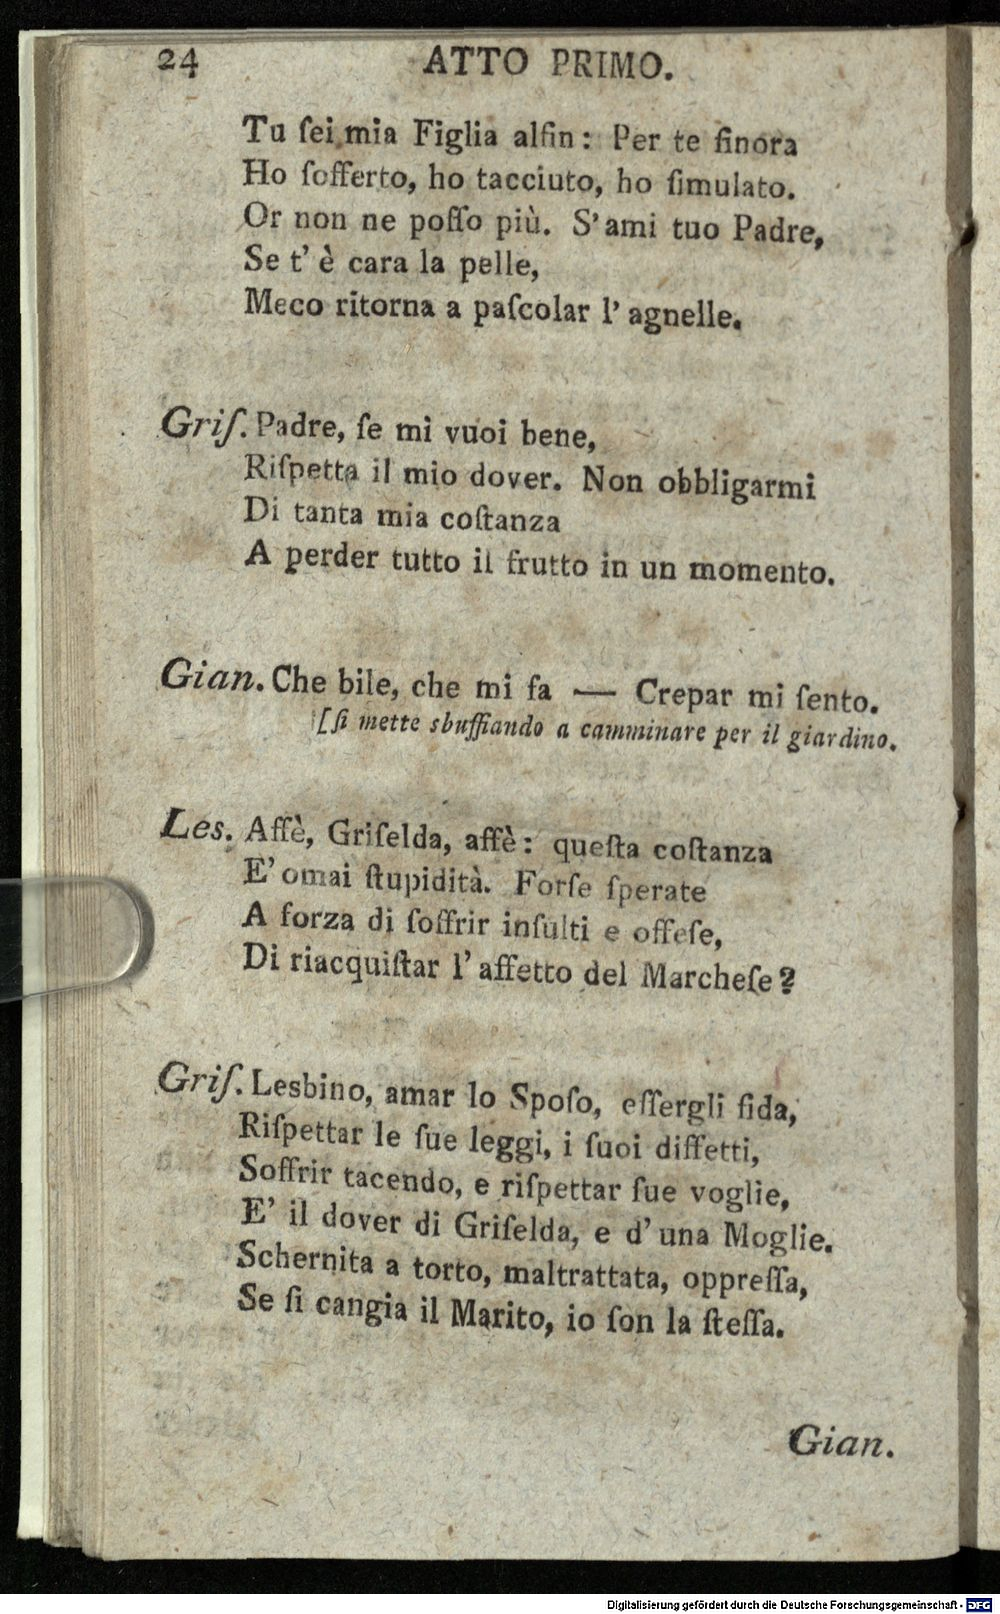 24 ATTO PRIMO.
Tu ſei mia Figlia alfin: Per te finora
Ho ſofferto, ho tacciuto, ho ſimulato.
Or non ne poſſo più. S'ami tuo Padre,
Se t'è cara la pelle,
Meco ritorna a paſcolar l'agnelle.
Griſ. Padre, ſe mi vuoi bene,
Riſpetta il mio dover. Non obbligarmi
Di tanta mia coſtanza
A perder tutto il frutto in un momento.
Gian. Che bile, che mi fa — Crepar mi ſento.
[ſi mette sbuffiando a camminare per il giardino.
Les. Affè, Griſelda, affè: queſta coſtanza
E' omai ſtupidità. Forſe ſperate
A forza di ſoffrir inſulti e offeſe,
Di riacquiſtar l'affetto del Marcheſe?
Griſ. Lesbino, amar lo Spoſo, eſſergli fida,
Riſpettar le ſue leggi, i ſuoi diffetti,
Soffrir tacendo, e riſpettar ſue voglie,
E' il dover di Griſelda, e d'una Moglie.
Schernita a torto, maltrattata, oppreſſa,
Se ſi cangia il Marito, io ſon la ſteſſa.
Gian.
Digitalisierung gefördert durch die Deutsche Forschungsgemeinschaft - DFG